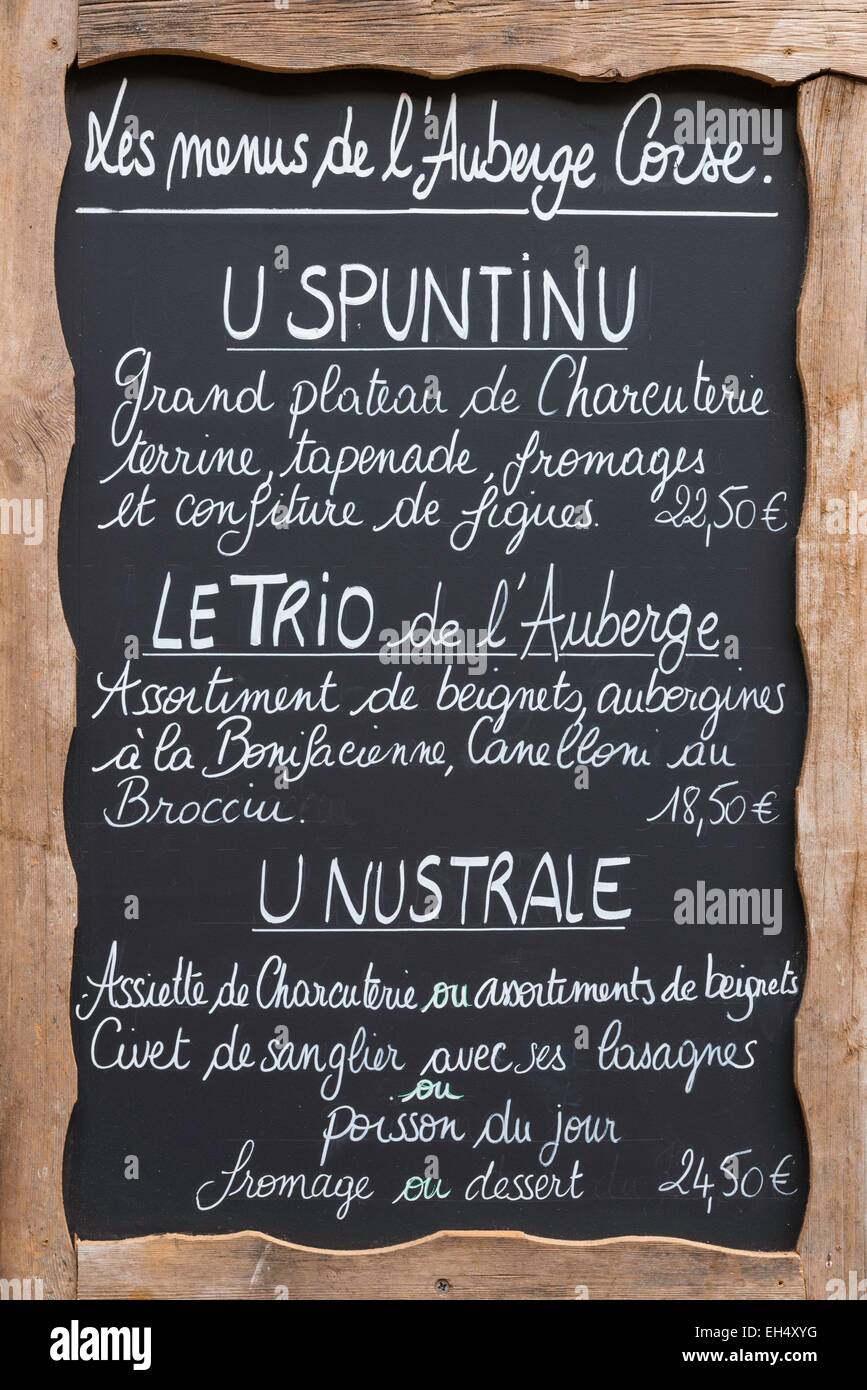 Les menus de l'Auberge Corse.
U SPUNTINU
Grand plateau de Charcuterie
terrine, tapenade, fromages
et confiture de figues. 22,50€
LE TRIO de l'Auberge
Assortiment de beignets, aubergines
à la Bonifacienne, Canelloni au
Brocciu. 18,50€
U NUSTRALE
Assiette de Charcuterie ou assortiments de beignets
Civet de sanglier avec ses lasagnes
ou
poisson du jour
fromage ou dessert 24,50€
alamy
alamy
alamy
alamy stock photo
EH4XYG
www.alamy.com